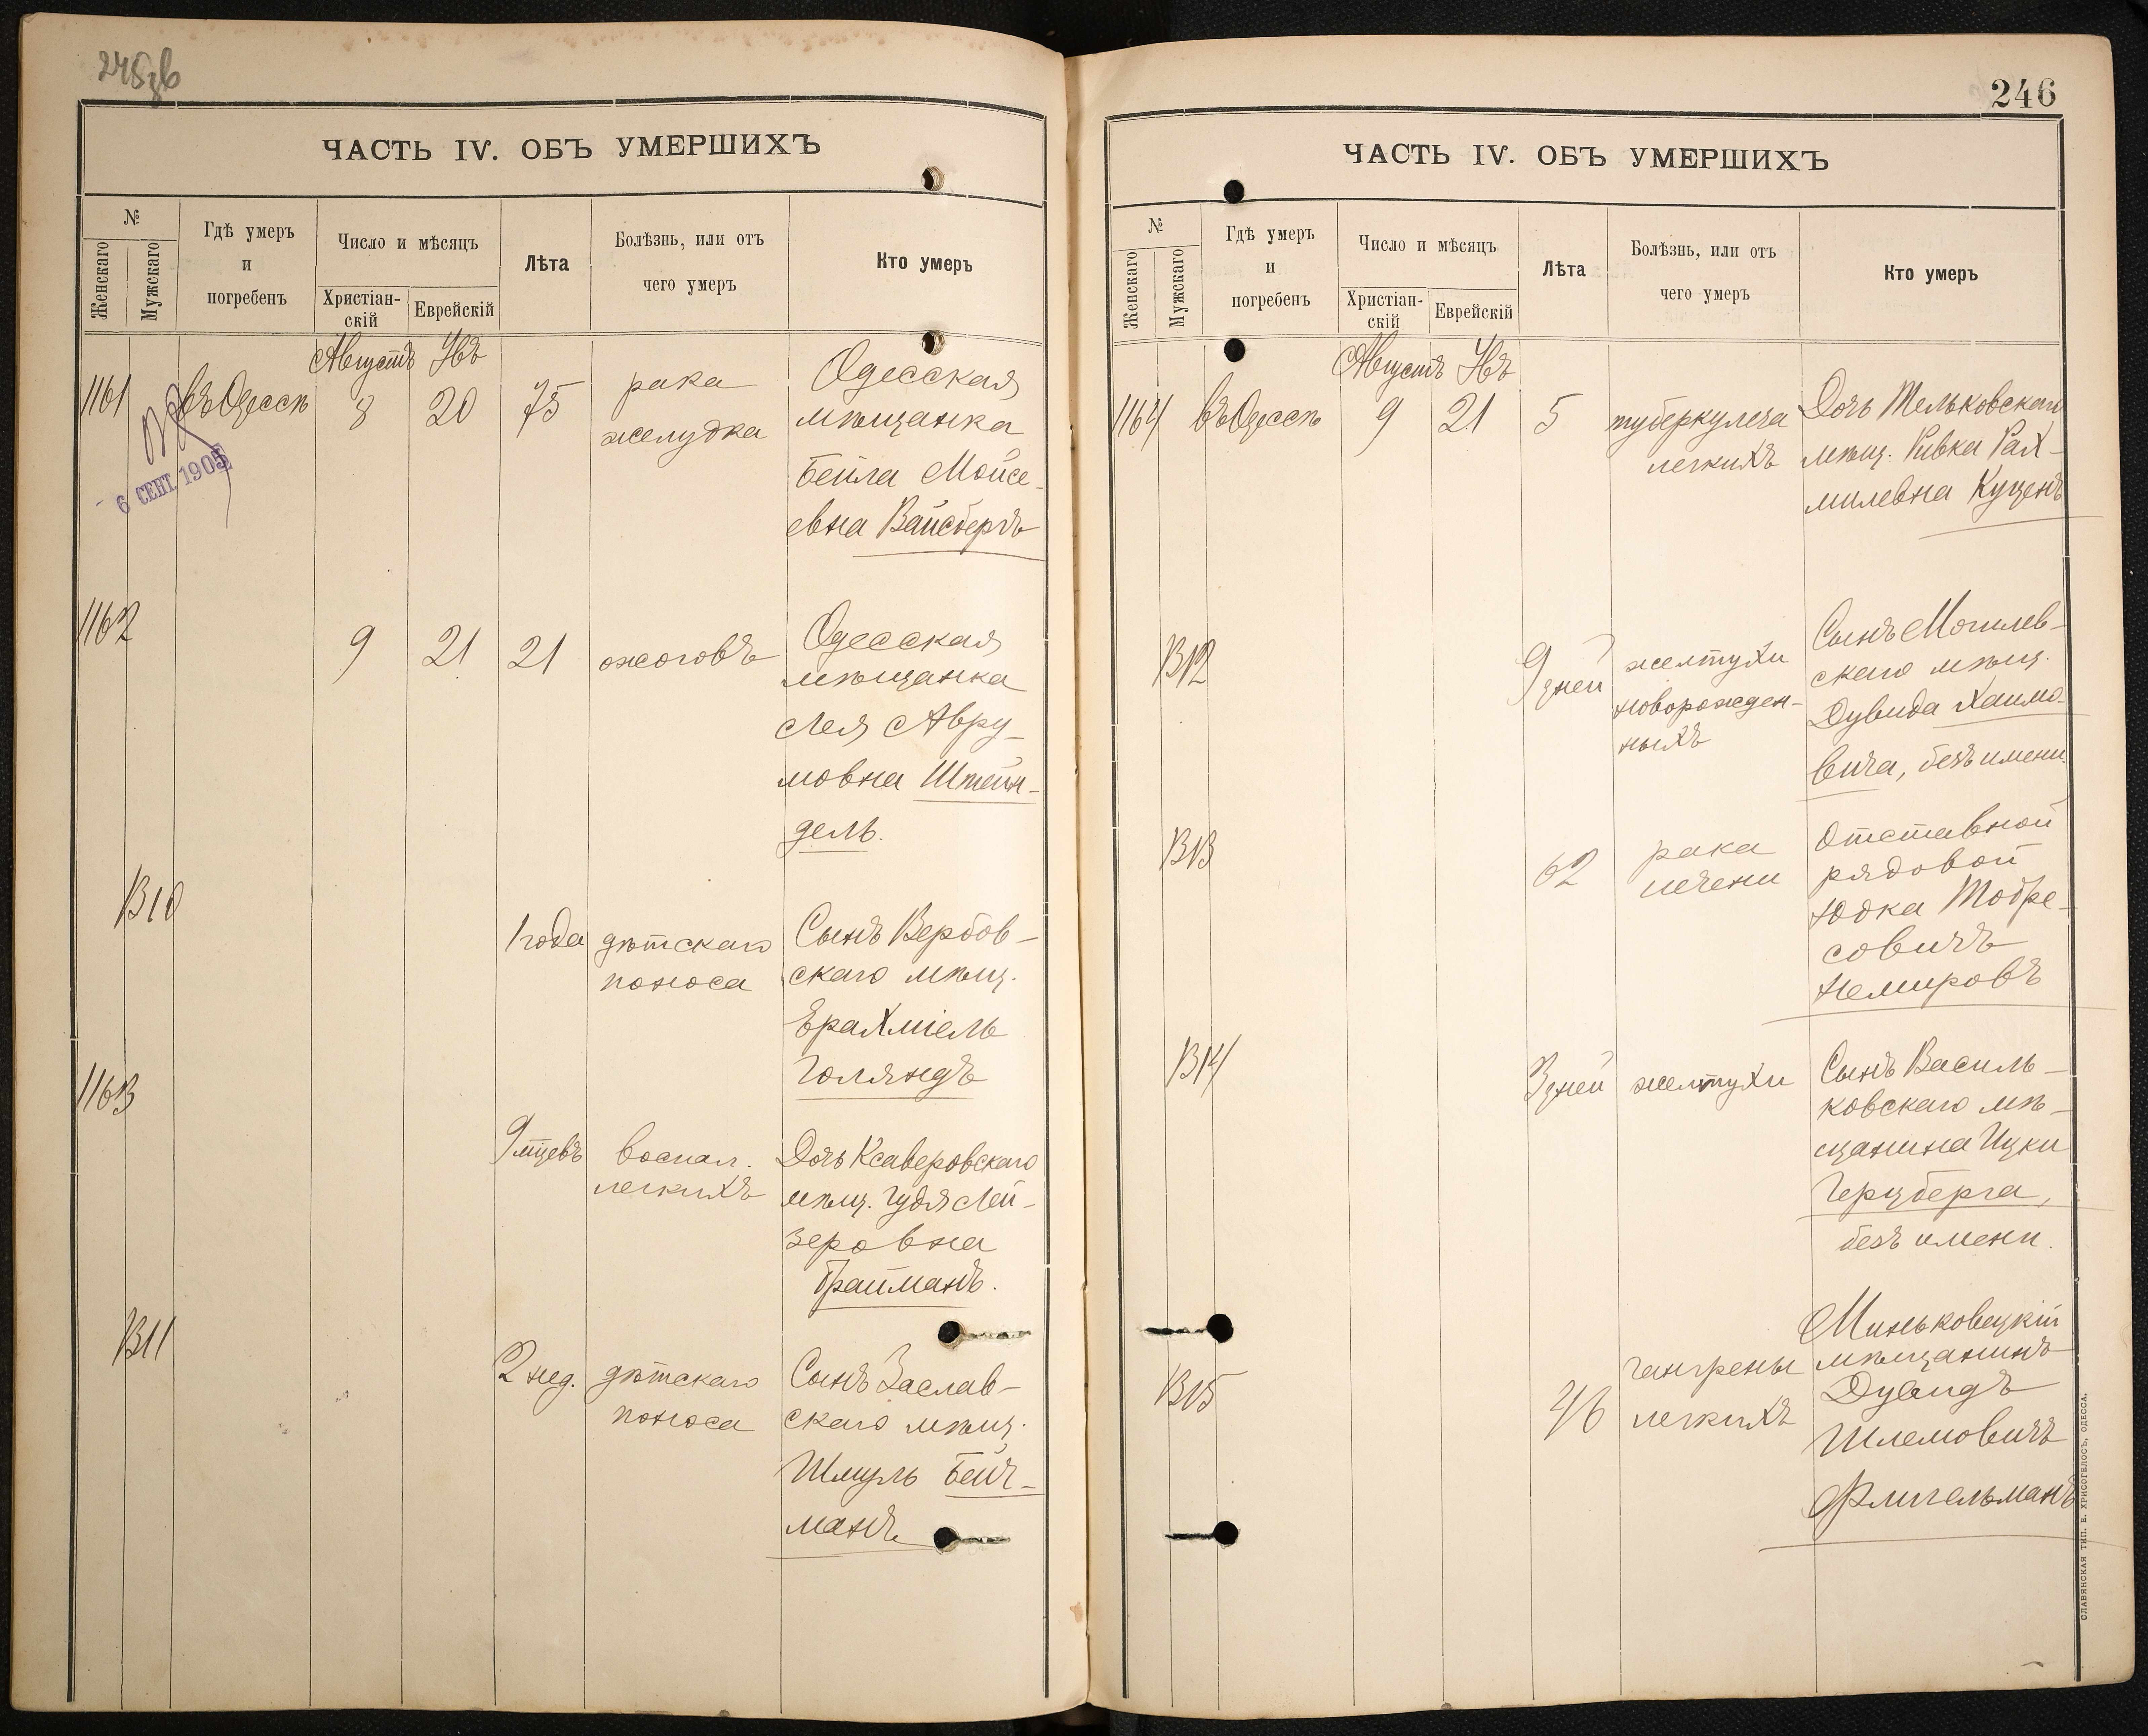 ЧАСТЬ IV. ОБЪ УМЕРШИХЪ
№
Женскаго
Мужскаго
Гдѣ умеръ
и
погребенъ
Число и мѣсяцъ
Христіан-
скій
Еврейскій
Лѣта
Болѣзнь, или отъ
чего умеръ
Кто умеръ
Августъ
1161
въ Одессѣ
8
20
75
рака
желудка
Одесская
мѣщанка
Бейла Мойсе-
евна Вайсбергъ
6 СЕНТ 1905
1162
9
21
21
ожоговъ
Одесская
мѣщанка
Лея Авру-
мовна Штейн-
дель.
1310
1 года
дѣтскаго
поноса
Сынъ Вербов-
скаго мѣщ.
Ерахміель
Голяндъ
1163
9 мцевъ
воспал.
легкихъ
Дочь Ксаверовскаго
мѣщ. Гудя Лей-
зеровна
Брайманъ.
1311
2 нед.
дѣтскаго
поноса
Сынъ Заслав-
скаго мѣщ.
Шмуль Бейч-
манъ
246
ЧАСТЬ IV. ОБЪ УМЕРШИХЪ
№
Женскаго
Мужскаго
Гдѣ умеръ
и
погребенъ
Число и мѣсяцъ
Христіан-
скій
Еврейскій
Лѣта
Болѣзнь, или отъ
чего умеръ
Кто умеръ
Августъ
1164
въ Одессѣ
9
21
5
туберкулеза
легкихъ
Дочь
мѣщ. Ривка Рах-
милевна Куценъ
1312
9 дней
желтухи
новорожден-
ныхъ
Сынъ Могилев-
скаго мѣщ.
Дувида Хаимо-
вича, безъ имени.
1313
62
рака
печени
Отставной
рядовой
Юдка
совичъ
Немировъ
1314
3 дней
желтухи
Сынъ Василь-
ковскаго мѣ-
щанина Ицки
Герцберга,
безъ имени.
1315
46
гангрены
легкихъ
Миньковецкій
мѣщанинъ
Дувидъ
Шлемовичъ
Флигельманъ
СЛАВЯНСКАЯ ТИП. Е. ХРИСОГЕЛОСЪ, ОДЕССА.